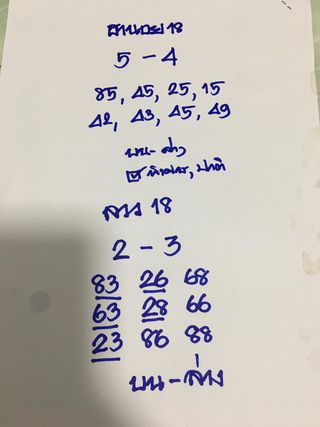 ฮานอย 18
5 - 4
85, 45, 25, 15
42, 43, 45, 49
บน - ล่าง
ลาว 18
2 - 3
83 26 68
63 28 66
23 86 88
บน - ล่าง